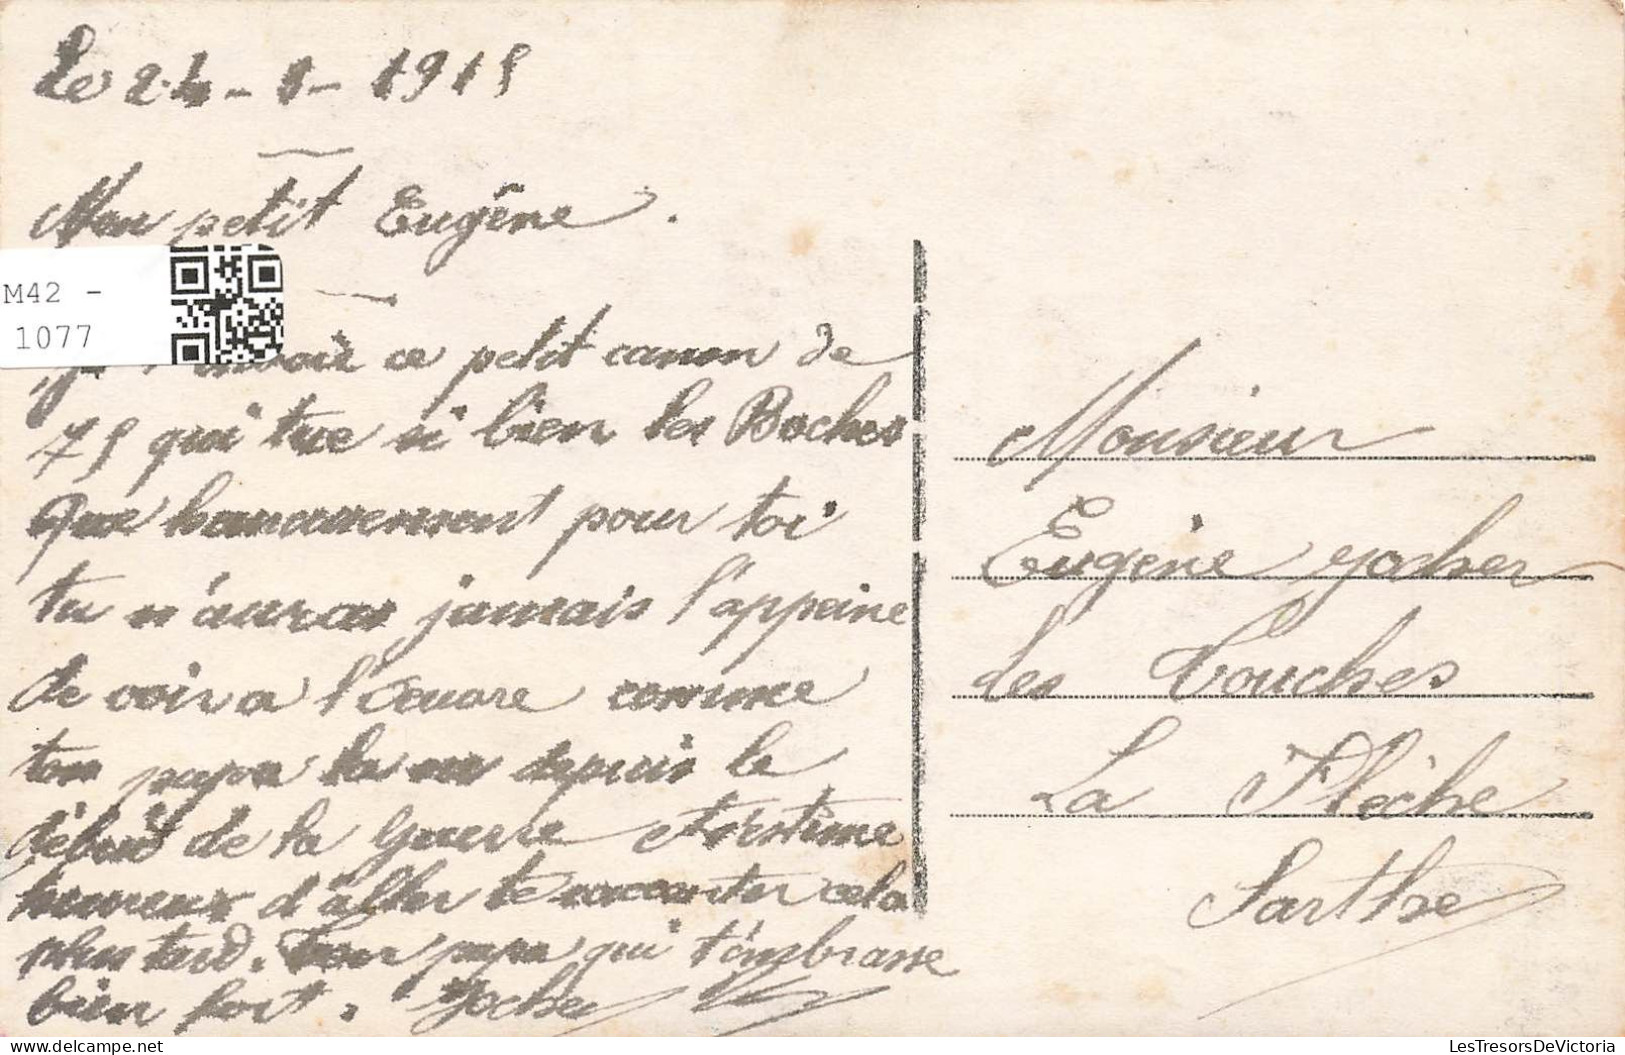 Le 24-1-1915
Mon petit Eugène.
M42 -
1077
Je t'envoie ce petit canon de
75 qui tue si bien les Boches
Que heureusement pour toi
tu n'auras jamais l'appeine
de voir a l'oeuvre comme
ton papa la vu depuis le
début de la Guerre
heureux d'aller te raconter cela
plus tard. Ton papa qui t'embrasse
bien fort. Yocher
Monsieur
Eugène Yocher
les Touches
La Flèche
Sarthe
LesTresorsDeVictoria